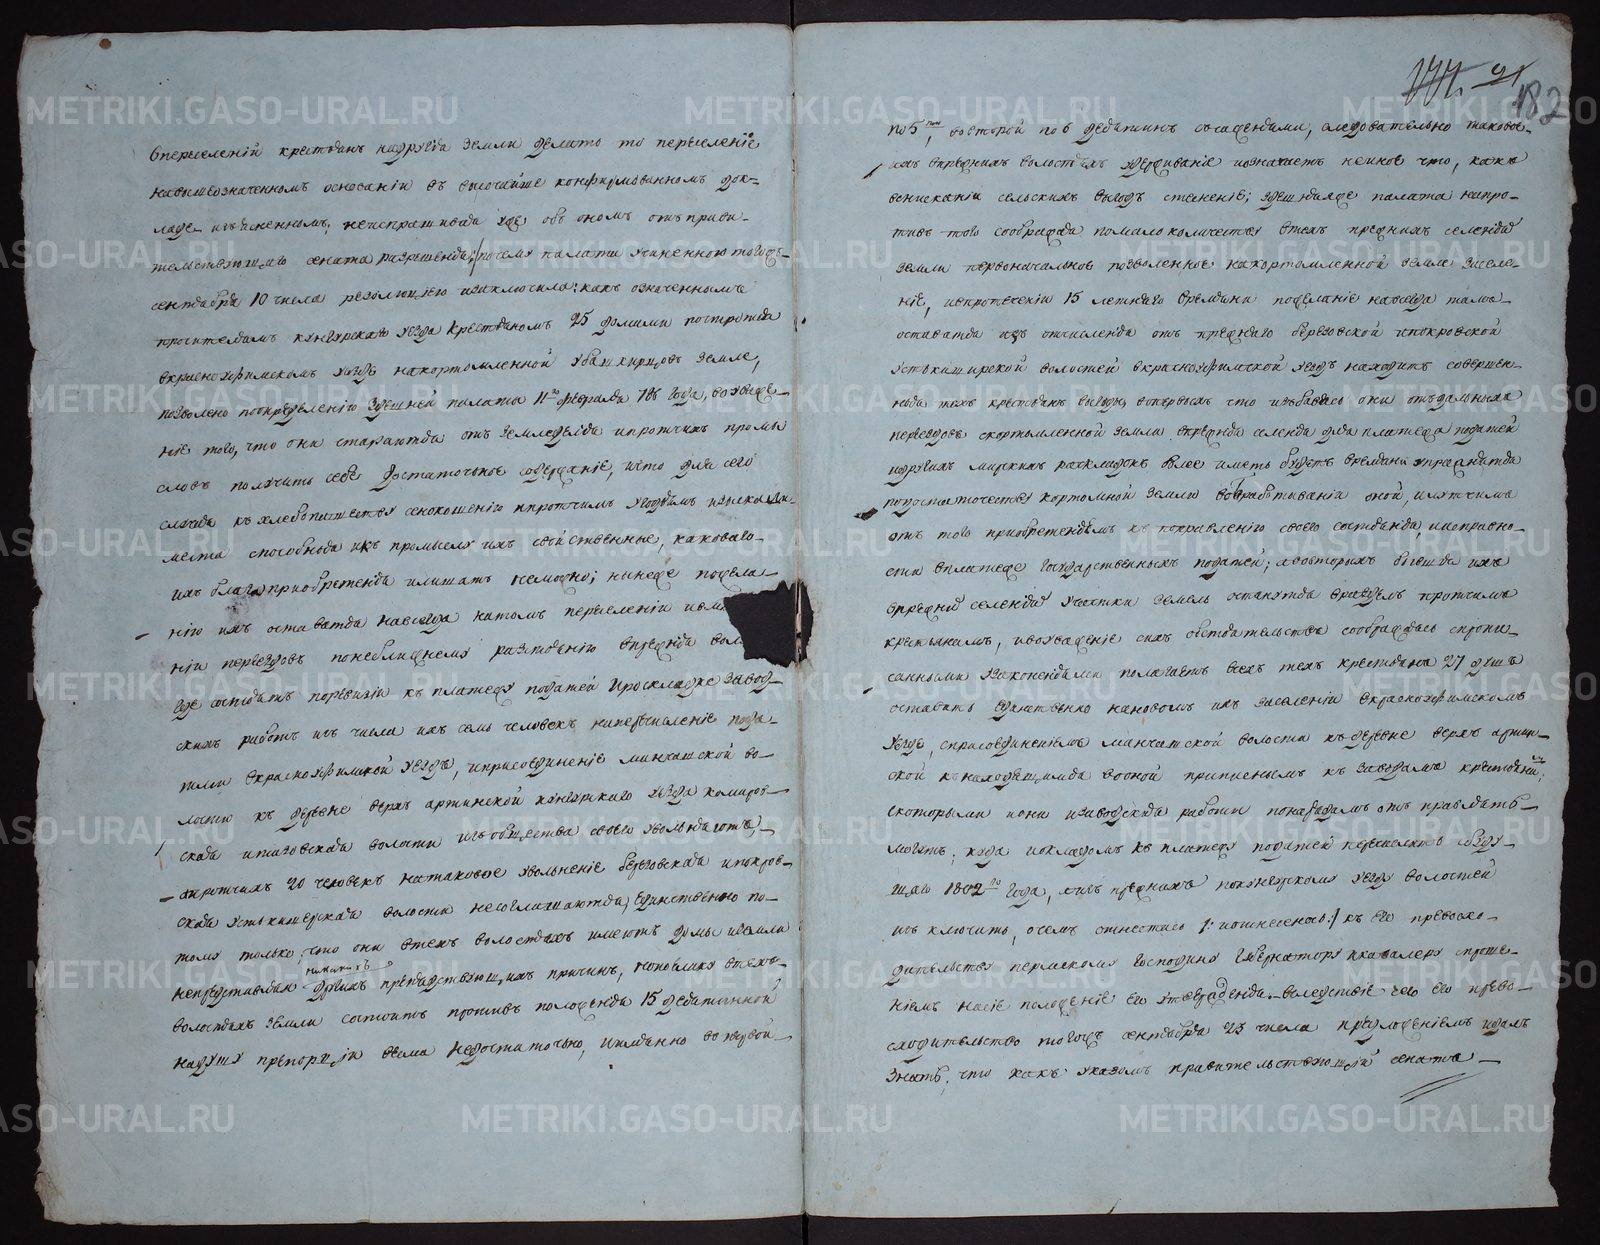 впереселений крестьянъ надругия земли делато то переселение
навышеозначенномъ основании въ высочайше конфирмованномъ док-
ладе изъясненномъ, неиспрашивая уже объ ономъ отъ прави-
тельствующаго сената разрешения; почему палаты учиненною тогожъ
сентября 10 числа резолюциею изаключила: какъ означеннымъ
просителямъ кунгурскаго уезда крестьяномъ 25 домами построятца
вкрасноуфимскомъ уезде накортомленной убашкирцовъ земле,
позволено поопределению здешней палаты 11го февраля года, воуваже-
ние того, что они стараютца отъ земледелия ипротчихъ промы
словъ получить себе достаточное содержание, ичто для сего
случая къ хлебопашеству сенокошению ипротчимъ угодьямъ изыскали
места способныя икъ промыслу ихъ свойственные, каковаго
ихъ благаприобретения илишать неможно; нынеже пожела-
нию ихъ остаτься навсегда натомъ переселении
нии переездовъ понеближнему разстоянию впрежния вол
где состоятъ поревизии къ платежу податей ираскладке завод-
скихъ работъ изъ числа ихъ семь человекъ наперечисление пода-
тьми вкрасноуфимской уездъ, иприсоединение манчажской во-
лости къ деревне верхъ артинской кунгурскаго уезда комаров-
ская итазовская волости изъ общества своего увольняютъ,
апротчихъ 20 человекъ натаковое увольнение березовская ипокров-
ская устькишерская волости несоглашаютца, единственно по-
тому только, что они втехъ волостяхъ имеютъ домы иземли
никакихъ
непредставляя другихъ препядствующихъ причинъ, нопоелику втехъ
волостяхъ земли состоитъ противъ положения 15 десятинной
надушу препорции весма недостаточно, иименно вопервой
177. 91
182
по 5ти, вовторой по 6 десятинъ съсаженями, следовательно таковое
ихъ впрежнихъ волостяхъ удерживание неозначаетъ неиное что, какъ
вснискании сельскихъ выгодъ стеснение; здешняяже палата напро-
тивъ того соображая помалоколичеству втехъ прежнихъ селенияхъ
земли первоначальное позволенное накортомленной земле заселе-
ние, ипопротечении 15 летняго времяни пожелание навсегда тамъ
остаτца изъ отчисления отъ прежняго березовской ипокровской
устькишерской волостей вкрасноуфимской уездъ находитъ совершен-
ныя техъ крестьянъ выгоды, вопервыхъ что избавясь они отъдальныхъ
переездовъ скортомленной земли впрежния селения для платежа податей
идругихъ мирскихъ раскладокъ более иметь будутъ времяни упражнятца
подостаточеству кортомной земли вобработывании оной, илутчимъ
отъ того приобретениемъ къ поправлению своего состояния, иисправно-
сти вплатеже государственныхъ податей; авовторыхъ бывшия ихъ
впрежний селенияхъ участки земель останутца вразделъ протчимъ
крестьянамъ, ивоуважение сихъ обстоятельствъ сображаясь спропи-
санными узаконениями полагаетъ всехъ техъ крестьянъ 27 душъ
оставить единственно нановомъ ихъ заселении вкрасноуфимскомъ
уезде, сприсоединениемъ манчажской волости къ деревне верхъ артин-
ской кънаходящимся воοной приписнымъ къ заводамъ крестьянамъ;
скоторыми иони изаводския работы понарядамъ отправлять
могутъ; куда иокладомъ къ платежу податей перечислить сбуду-
щаго 1802го года, аизъ прежнихъ покунгурскому уезду волостей
исключить, очемъ отнестись /: иотнесенось :/ къ его превосхо-
дительству пермскому господину губернатору икавалеру спроше-
ниемъ насие положение его утверждения. Воследствие чего его превос-
ходительство тогожъ сентября 23 числа предложениемъ издалъ
знать, что какъ указомъ правительствующий сената